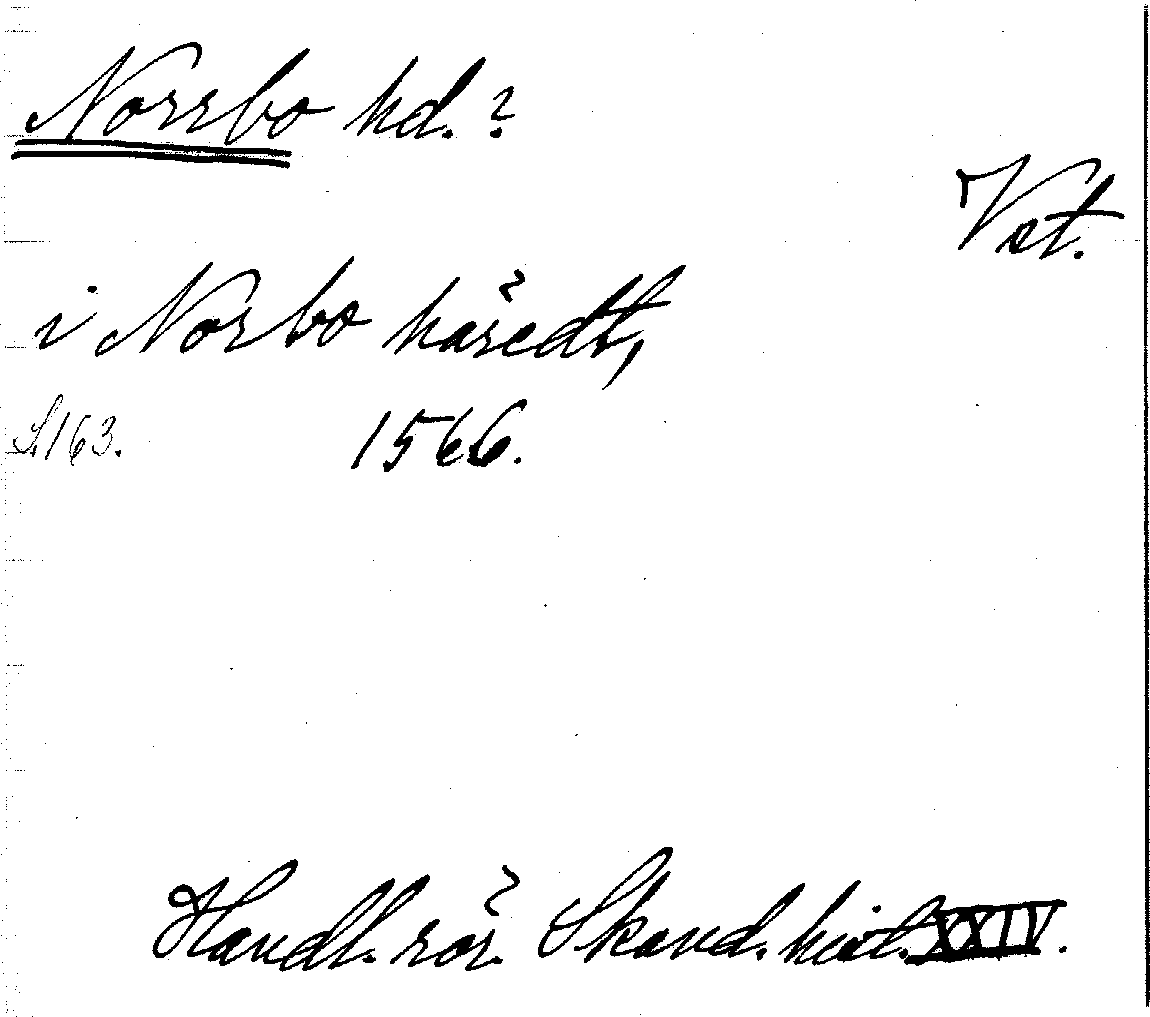 Norrbo hd.?
Vst.
i Norbo häredt,
S.163. 1566.
Handl. rör. Skand. hist. XXIV.